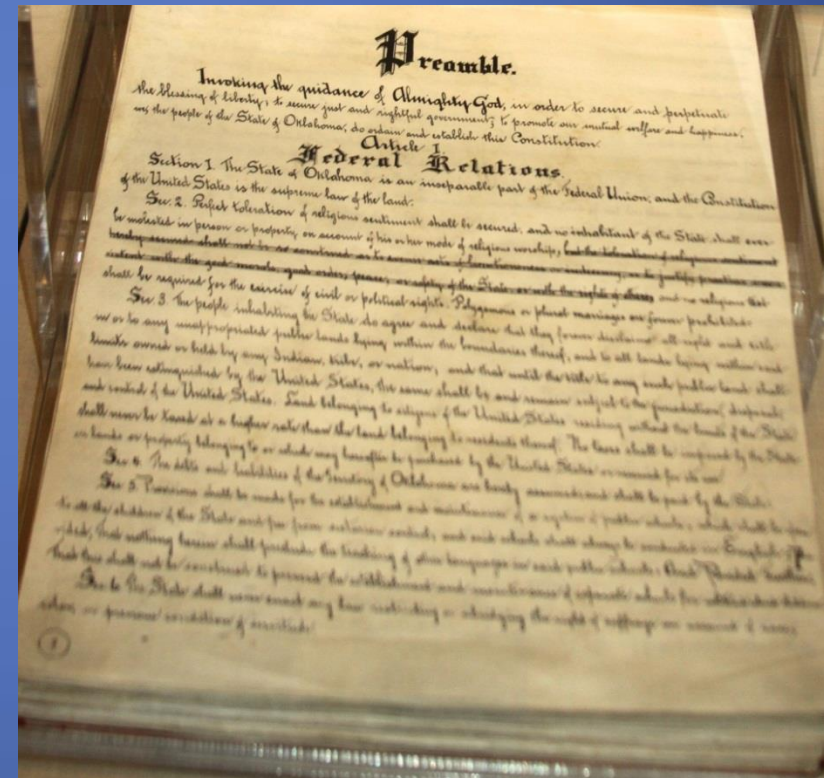 Preamble.
Invoking the guidance of Almighty God, in order to secure and perpetuate
the blessing of liberty; to secure just and rightful government; to promote our mutual welfare and happiness,
we, the people of the State of Oklahoma, do ordain and establish this Constitution.
Article I.
Federal Relations.
Section 1. The State of Oklahoma is an inseparable part of the Federal Union, and the Constitution
of the United States is the supreme law of the land.
Sec. 2. Perfect toleration of religious sentiment shall be secured, and no inhabitant of the State shall ever
be molested in person or property on account of his or her mode of religious worship; but the toleration of religious sentiment
hereby secured shall not be so construed as to excuse acts of licentiousness or
with the good morals, good order, peace, or safety of the State, or with the rights of others and no religious test
shall be required for the exercise of civil or political rights. Polygamous or plural marriages are forever prohibited.
Sec 3. The people inhabiting the State do agree and declare that they forever disclaim all right and title
in or to any unappropriated public lands lying within the boundaries thereof, and to all lands lying within said
limits owned or held by any Indian, tribe, or nation; and that until the title to any such public land shall
have been extinguished by the United States, the same shall be and remain subject to the jurisdiction, disposal,
and control of the United States. Land belonging to citizens of the United States residing without the limits of the State
shall never be taxed at a higher rate than the land belonging to residents thereof. No taxes shall be imposed by the State
on lands or property belonging to or which may hereafter be purchased by the United States or reserved for its use.
Sec 4. The debts and liabilities of the Territory of Oklahoma are hereby assumed and shall be paid by the State.
Sec 5. Provisions shall be made for the establishment and maintenance of a system of public schools, which shall be open
to all the children of the State and free from sectarian control; and said schools shall always be conducted in English:
that nothing herein shall preclude the teaching of other languages in said public schools: And Provided Further,
that this shall not be construed to prevent the establishment and maintenance of separate schools for
Sec 6. The State shall never enact any law restricting or abridging the right of suffrage on account of race,
color, or previous condition of servitude.
1